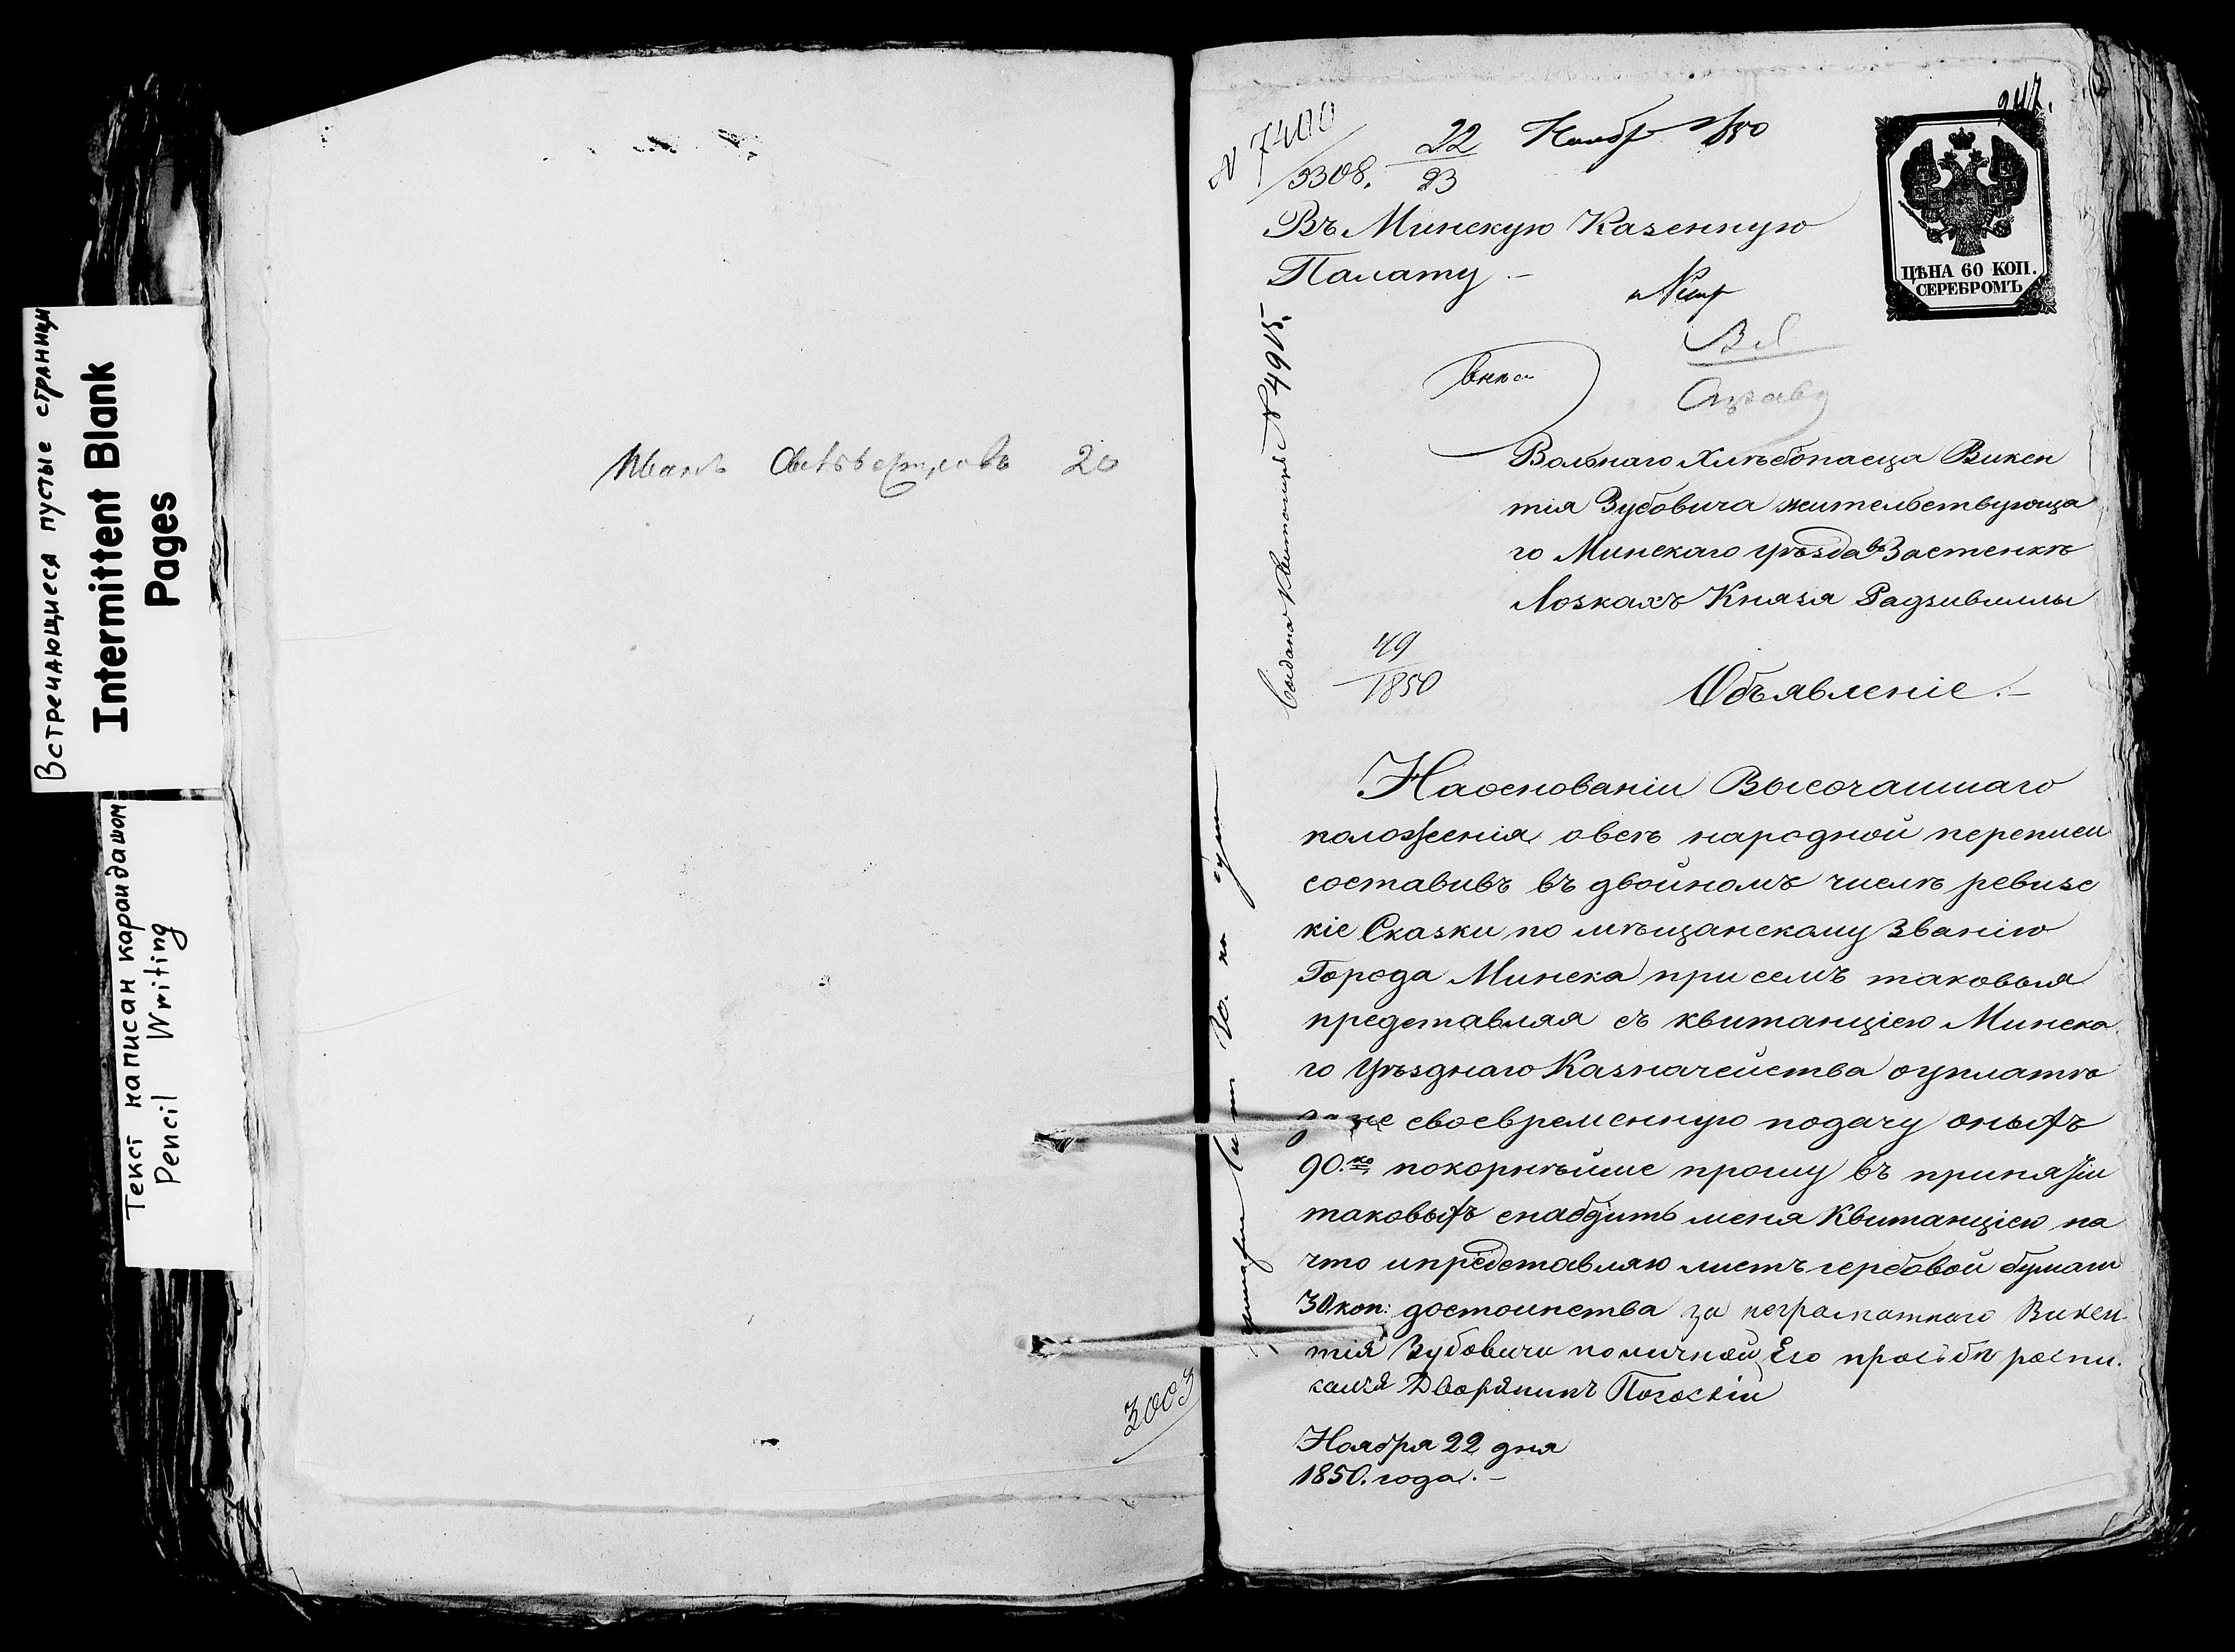 Встречающиеся пустые страницы
Intermittent Blank
Pages
Текст написан карандашом
Pencil Writing
Иванъ 20
3003
247.
N 7400
3308.
22 Ноябр 1850
23
ЦѢНА 60 КОП.
СЕРЕБРОМЪ
Въ Минскую Казенную
Палату.–
Выдана Квитанція N 4915.
Вольнаго Хлѣбопасца Викен
тія Зубовича жительствующа
го Минскаго уѣзда въ Застенкѣ
Лозкахъ Князя Радзивиллы
49
1850
Объявленіе.–
Наоснованіи Высочаишаго
положенія овсѣ народной переписи
составивъ въ двойномъ числѣ ревизс
кіе Сказки по мѣщанскому Званію
Города Минска при семъ таковыя
представляя съ квитанціею Минска
го Уѣзднаго Казначейства оуплатѣ
за не своевременную подачу оныхъ
90.ко покорнѣйше прошу въ принятіи
таковыхъ снабдить меня Квитанціею на
что ипредставляю листъ гербовой бумаги
30 коп: достоинства за неграмотнаго Викен
тія Зубовича поличной Его просьбѣ распи.
сался Дворянинъ Погоскій
Ноября 22 дня
1850. года.–